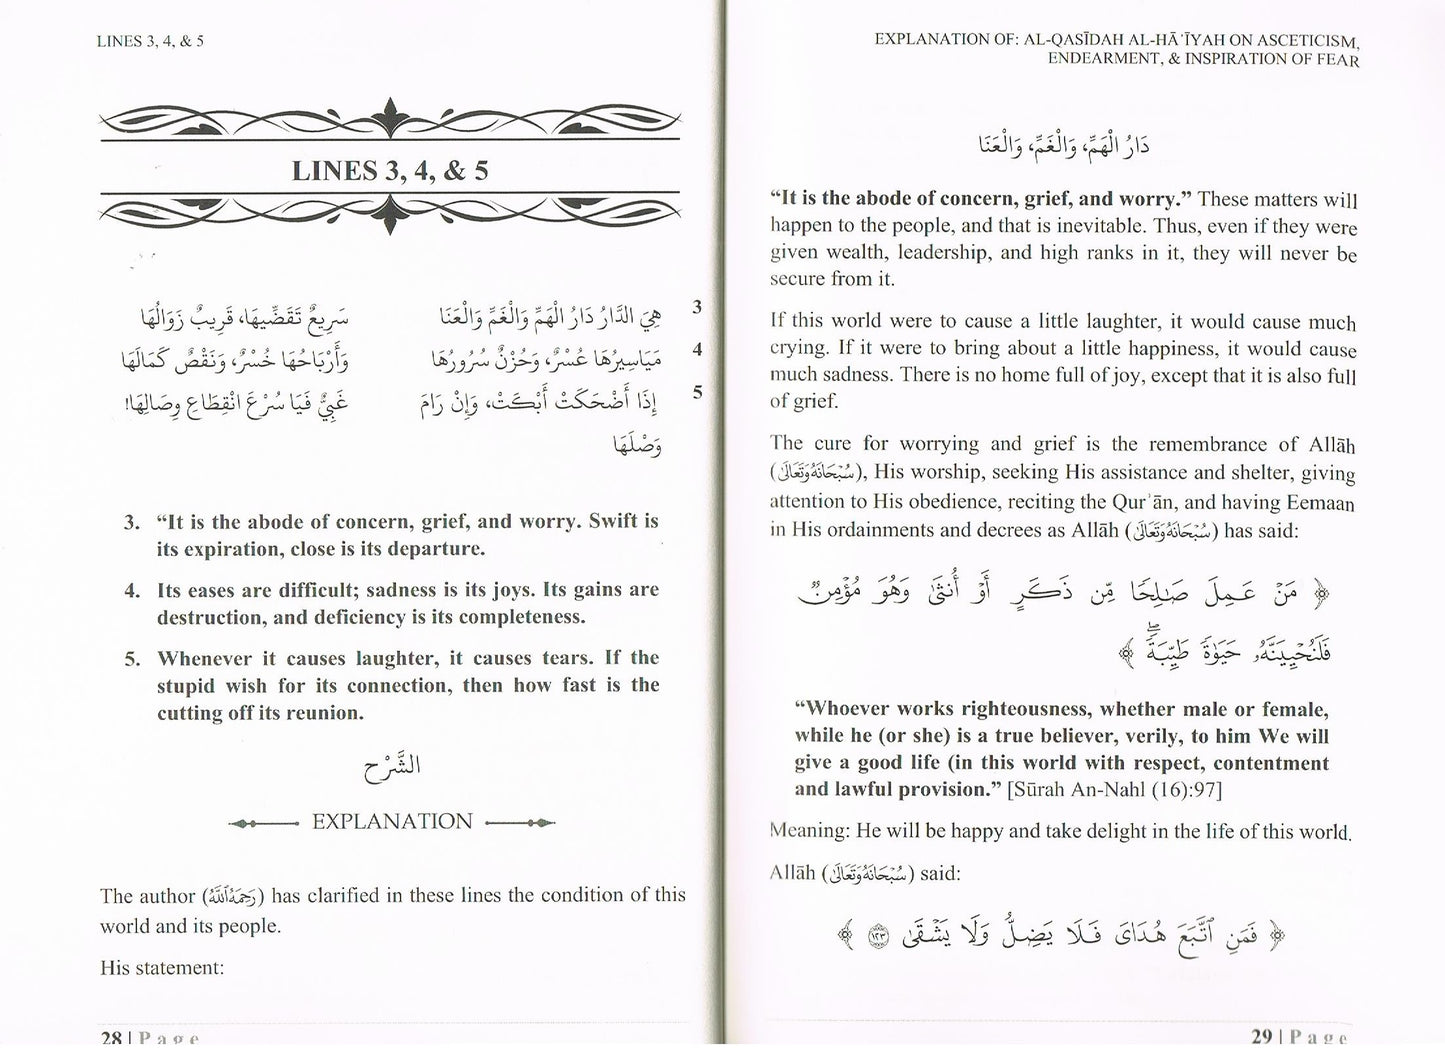 LINES 3, 4, & 5
LINES 3, 4, & 5
3 هِيَ الدَّارُ دَارُ الْهَمِّ وَالْغَمِّ وَالْعَنَا سَرِيعٌ تَقَضِّيهَا، قَرِيبٌ زَوَالُهَا
4 مَيَاسِيرُهَا عُسْرٌ، وَحُزْنٌ سُرُورُهَا وَأَرْبَاحُهَا خُسْرٌ، وَنَقْصٌ كَمَالُهَا
5 إِذَا أَضْحَكَتْ أَبْكَتْ، وَإِنْ رَامَ غَبِيٌّ فَيَا سُرْعَ انْقِطَاعِ وِصَالِهَا!
وَصْلَهَا
3. “It is the abode of concern, grief, and worry. Swift is
its expiration, close is its departure.
4. Its eases are difficult; sadness is its joys. Its gains are
destruction, and deficiency is its completeness.
5. Whenever it causes laughter, it causes tears. If the
stupid wish for its connection, then how fast is the
cutting off its reunion.
الشَّرْح
EXPLANATION
The author (رَحِمَهُ ٱللَّهُ) has clarified in these lines the condition of this
world and its people.
His statement:
28 | Page
EXPLANATION OF: AL-QASĪDAH AL-HĀʾĪYAH ON ASCETICISM,
ENDEARMENT, & INSPIRATION OF FEAR
دَارُ الْهَمِّ، وَالْغَمِّ، وَالْعَنَا
“It is the abode of concern, grief, and worry.” These matters will
happen to the people, and that is inevitable. Thus, even if they were
given wealth, leadership, and high ranks in it, they will never be
secure from it.
If this world were to cause a little laughter, it would cause much
crying. If it were to bring about a little happiness, it would cause
much sadness. There is no home full of joy, except that it is also full
of grief.
The cure for worrying and grief is the remembrance of Allāh
(سُبْحَانَهُ وَتَعَالَىٰ), His worship, seeking His assistance and shelter, giving
attention to His obedience, reciting the Qurʾān, and having Eemaan
in His ordainments and decrees as Allāh (سُبْحَانَهُ وَتَعَالَىٰ) has said:
﴿ مَنْ عَمِلَ صَـٰلِحًا مِّن ذَكَرٍ أَوْ أُنثَىٰ وَهُوَ مُؤْمِنٌ
فَلَنُحْيِيَنَّهُۥ حَيَوٰةً طَيِّبَةً ۖ ﴾
“Whoever works righteousness, whether male or female,
while he (or she) is a true believer, verily, to him We will
give a good life (in this world with respect, contentment
and lawful provision.” [Sūrah An-Nahl (16):97]
Meaning: He will be happy and take delight in the life of this world.
Allāh (سُبْحَانَهُ وَتَعَالَىٰ) said:
﴿ فَمَنِ ٱتَّبَعَ هُدَاىَ فَلَا يَضِلُّ وَلَا يَشْقَىٰ ١٢٣ ﴾
29 | Page